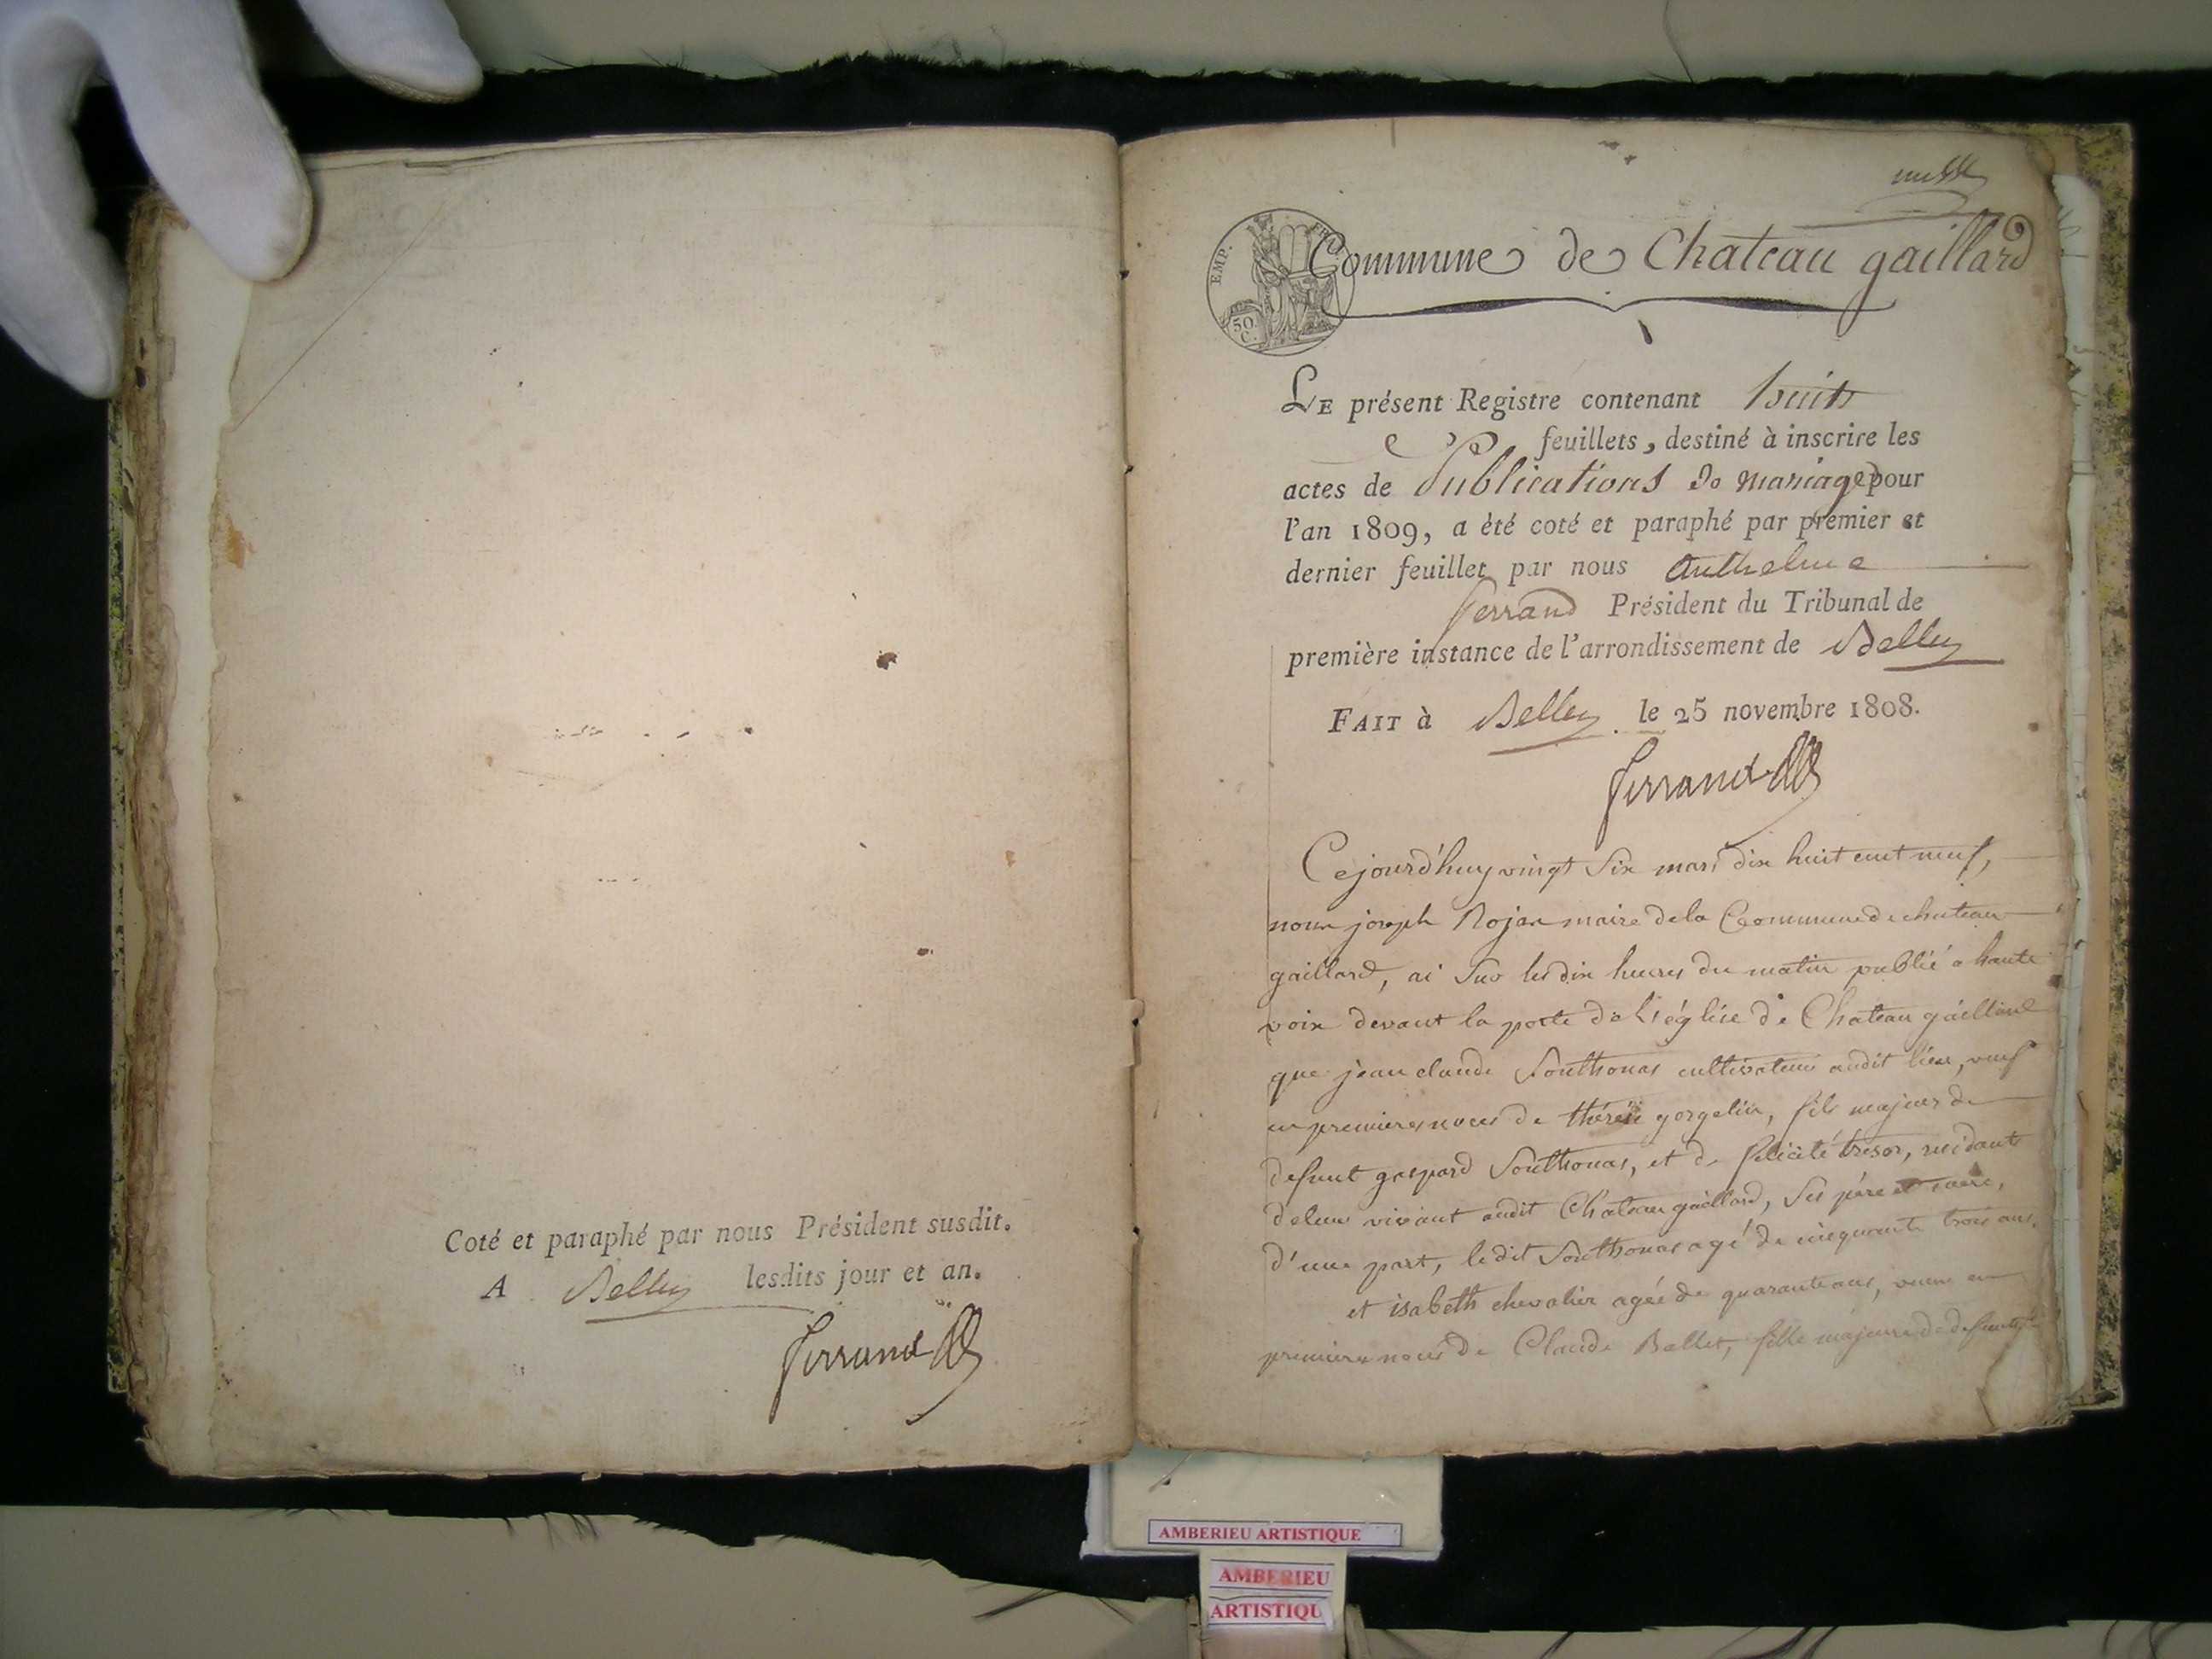 Coté et paraphé par nous Président susdit.
A Belley lesdits jour et an.
ferrand
EMP. FRA
50 C.
Commune de Chateau gaillard
LE présent Registre contenant huit
feuillets, destiné à inscrire les
actes de Publications de mariage pour
l'an 1809, a été coté et paraphé par premier et
dernier feuillet par nous Anthelme
ferrand Président du Tribunal de
première instance de l'arrondissement de Belley
FAIT à Belley le 25 novembre 1808.
ferrand
Cejourd'huy vingt Six mars dix huit cent neuf,
nous joseph Rojar maire de la Commune de chateau
gaillard, ai Sur les dix heures du matin publié a haute
voix devant la porte de L'église de Chateau gaillard
que jean claude Southonas cultivateur audit lieu, veuf
en premieres noces de thérèse gorgelin, fils majeur de
defunt gaspard Southonas, et de felicité trésor, residant
de leur vivant audit Chateau gaillard, Ses père et mere,
d'une part, le dit Southonas agé de cinquante trois ans.
et isabeth chevalier agée de quarante ans, veuve en
premieres noces de Claude Ballet, fille majeure de defunts
AMBERIEU ARTISTIQUE
AMBERIEU
ARTISTIQU